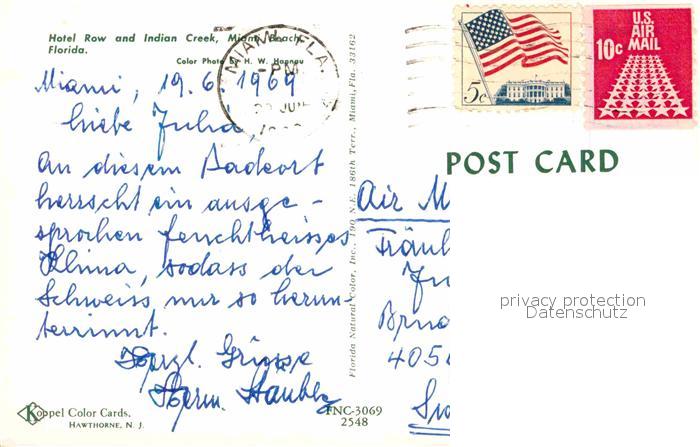 Hotel Row and Indian Creek, Miami Beach,
Florida.
Color Photo by H. W. Hannau
Miami, 19.6.1969
Liebe Julia,
An diesem Badeort
herrscht ein ausge-
sprochen feuchtheisses
Klima, sodass der
Schweiss nur so herun-
terrinnt.
Herzl. Grüsse
Herm.
Koppel Color Cards.
HAWTHORNE, N. J.
FNC-3069
2548
Florida Natural Color, Inc., 190 N.E. 186th Terr., Miami, Fla. 33162
MIAMI, FLA.
PM
JUN
5c
U.S.
AIR
MAIL
10c
POST CARD
Air M
Fräul
Ju
405
privacy protection
Datenschutz